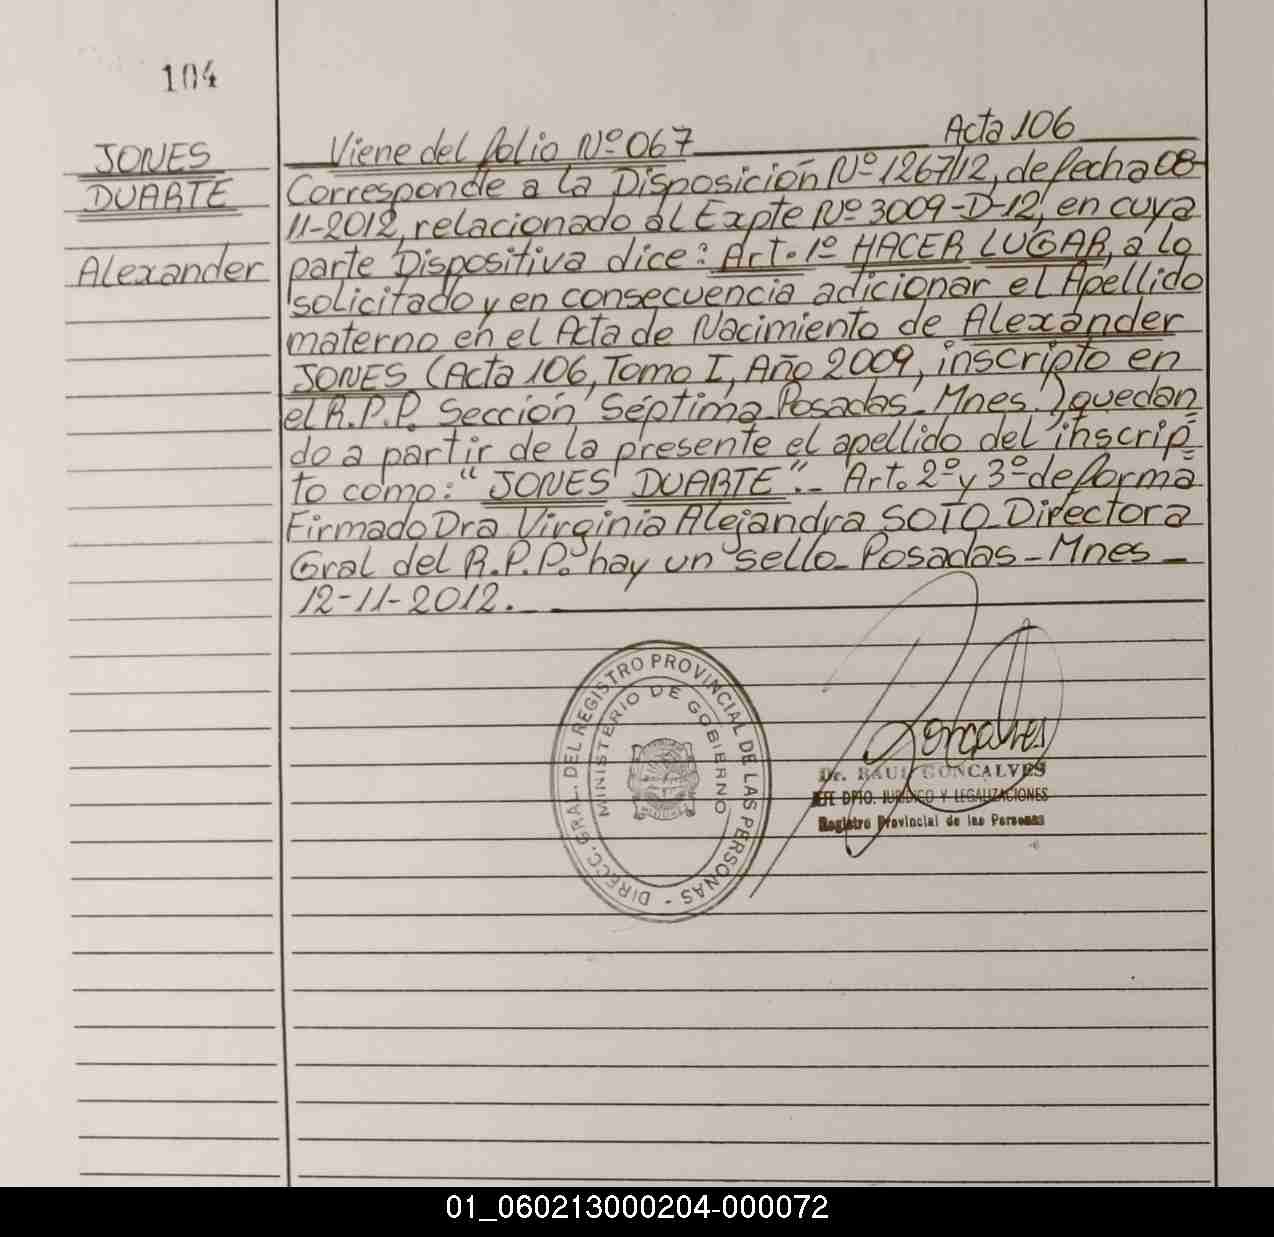 104
JONES
DUARTE
Alexander
Viene del folio Nº 067 Acta 106
Corresponde a la Disposición Nº 1267/12, de fecha 08-
11-2012, relacionado al Expte Nº 3009-D-12, en cuya
parte Dispositiva dice: Art. 1º HACER LUGAR, a lo
solicitado y en consecuencia adicionar el Apellido
materno en el Acta de Nacimiento de Alexander
JONES (Acta 106, Tomo I, Año 2009, inscripto en
el R.P.P. Sección Séptima Posadas-Mnes.), quedan
do a partir de la presente el apellido del inscrip=
to como: "JONES DUARTE".- Art. 2º y 3º de forma
Firmado Dra Virginia Alejandra SOTO Directora
Gral del R.P.P. hay un sello - Posadas - Mnes -
12-11-2012. -
DIRECC. GRAL. DEL REGISTRO PROVINCIAL DE LAS PERSONAS -
MINISTERIO DE GOBIERNO
Goncalves
Dr. RAUL GONCALVES
JEFE DPTO. JURIDICO Y LEGALIZACIONES
Registro Provincial de las Personas
01_060213000204-000072